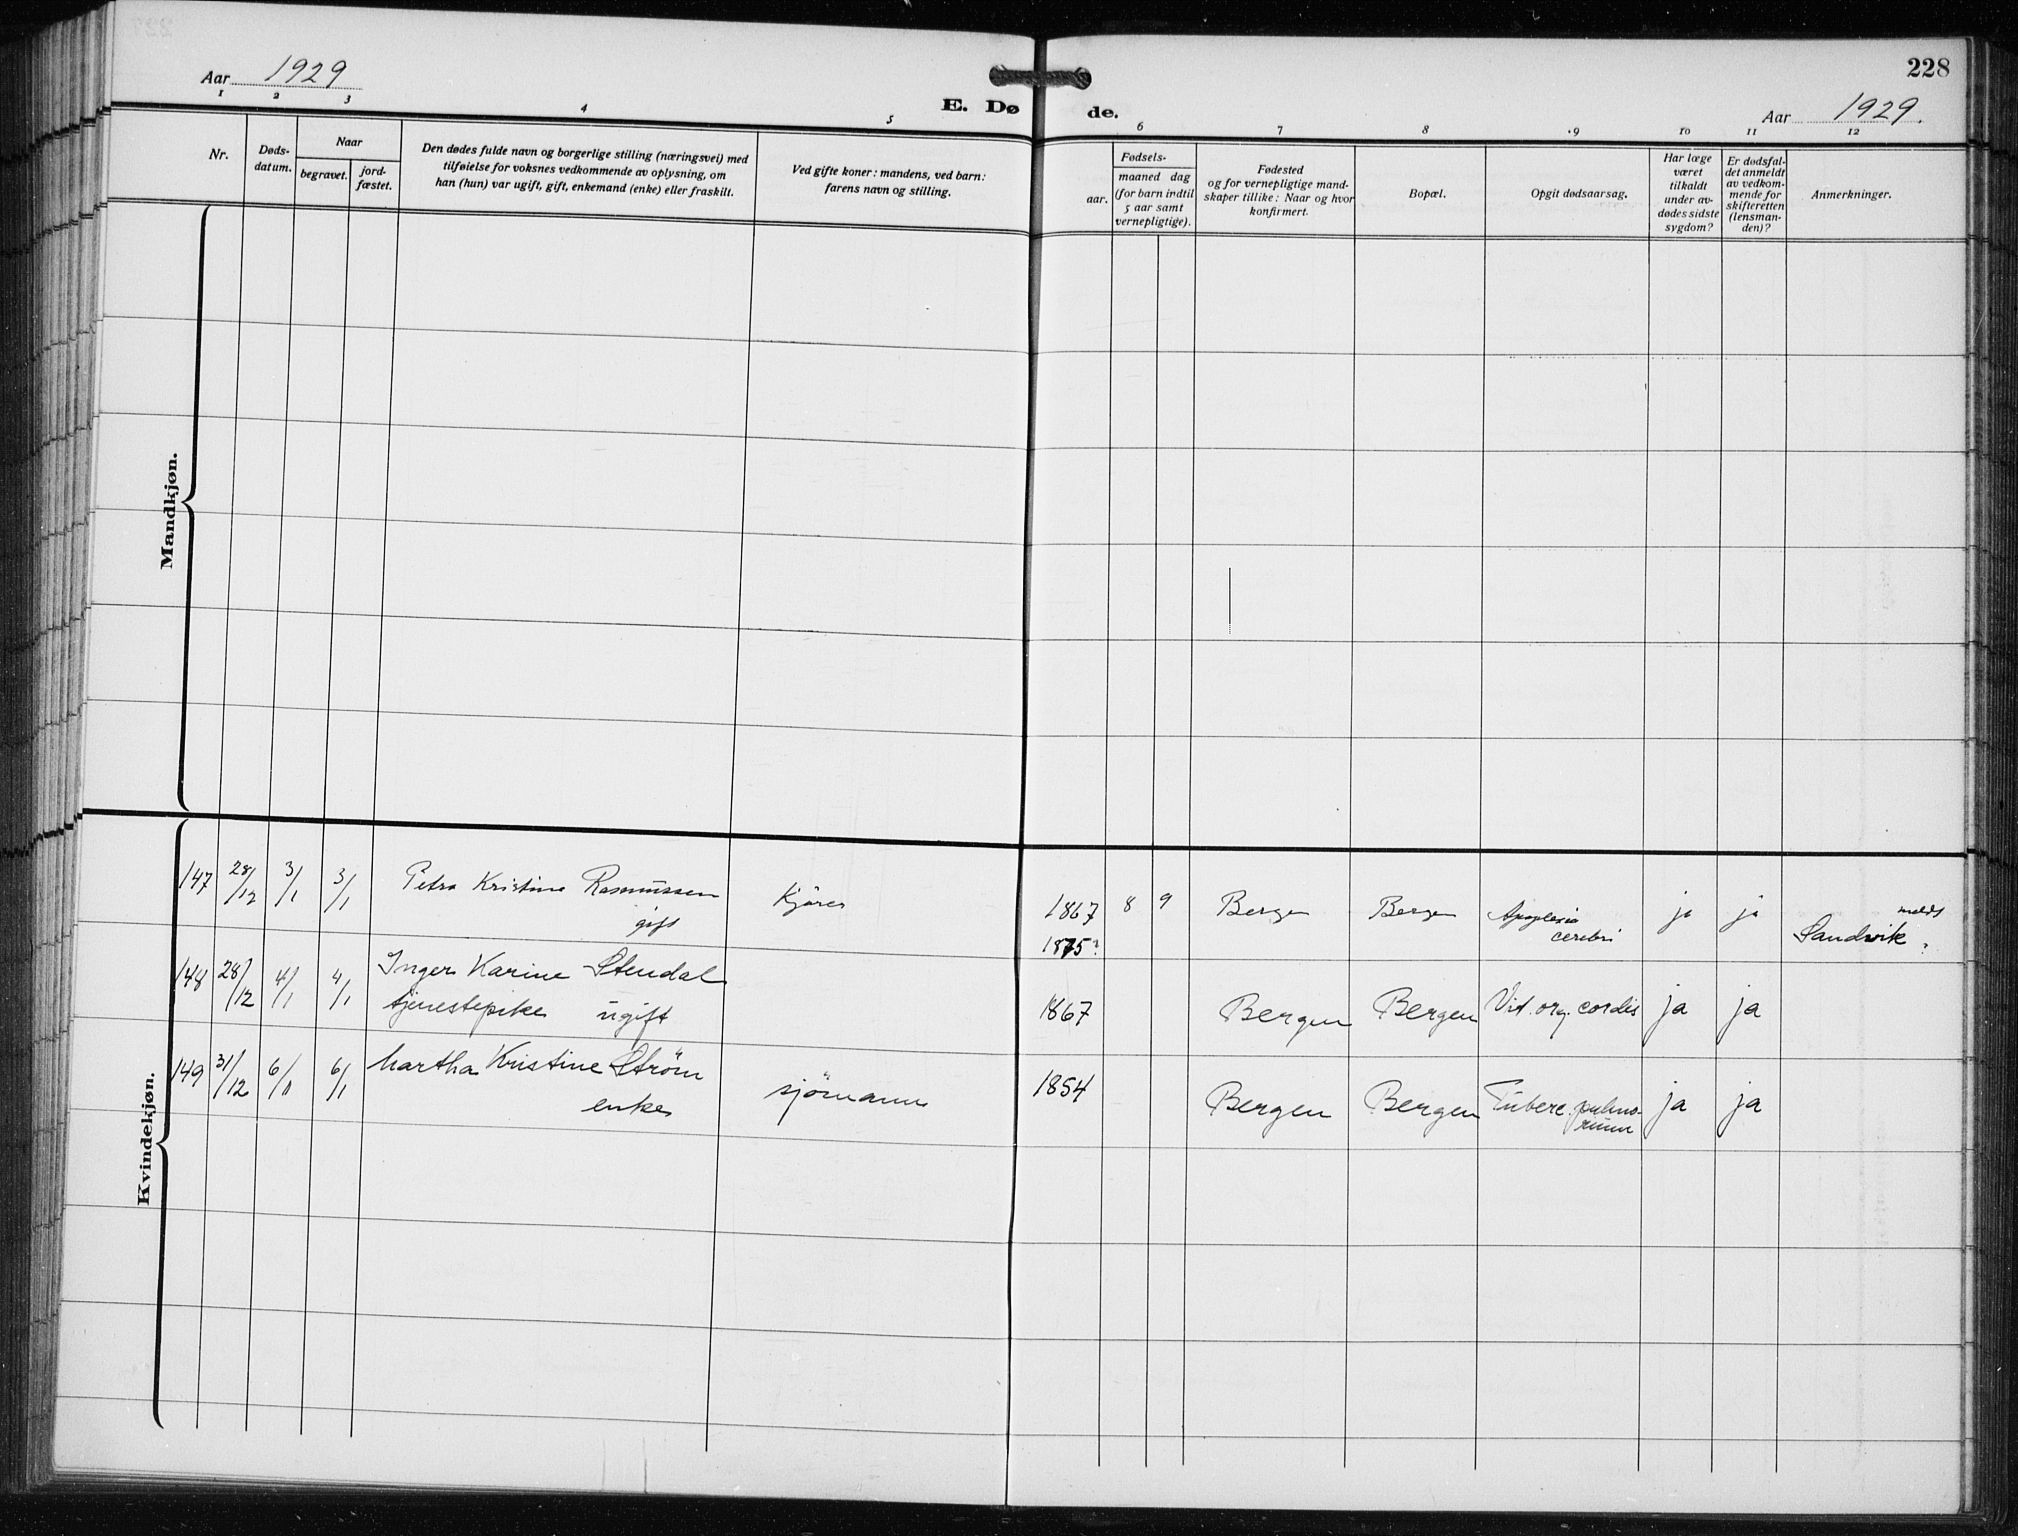 228
Aar 1929
E. Døde.
Aar 1929.
1 2 3 4 5 6 7 8 9 10 11 12
Nr.
Døds-
datum.
Naar
begravet.
jord-
fæstet.
Den dødes fulde navn og borgerlige stilling (næringsvei) med
tilføielse for voksnes vedkommende av oplysning, om
han (hun) var ugift, gift, enkemand (enke) eller fraskilt.
Ved gifte koner: mandens, ved barn:
farens navn og stilling.
Fødsels-
aar.
maaned dag
(for barn indtil
5 aar samt
vernepligtige).
Fødested
og for vernepligtige mand-
skaper tillike: Naar og hvor
konfirmert.
Bopæl.
Opgit dødsaarsag.
Har læge
været
tilkaldt
under av-
dødes sidste
sygdom?
Er dødsfal-
det anmeldt
av vedkom-
mende for
skifteretten
(lensman-
den)?
Anmerkninger.
Mandkjøn.
Kvindekjøn.
147 28/12 3/1 3/1 Petra Kristine Rasmussen Kjører 1867 8 9 Bergen Bergen Apoplexia ja ja
gift 1875? cerebri Sandvik
148 28/12 4/1 4/1 Inger Karine Stendal 1867 Bergen Bergen Vit. org. cordis ja ja
tjenestepike ugift
149 31/12 6/1 6/1 Martha Kristine Strøm sjømann 1854 Bergen Bergen Tuberc. pulmo- ja ja
enke rum